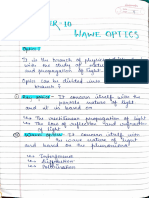 R-10
WAVE OPTICS
Optics:
It is the branch of physics
with the study of nature
and propagation of light.
Optics can be divided into
branch?
① Ray optics - It concern itself with the
particle nature of light
and is based on
(i) The rectilinear propagation of light
(ii) The law of reflection and refraction
of light
② Wave optics: It concern itself with
wave nature of light
and based on the phenomenon
(i) Interference
(ii) Diffraction
(iii) Polarisation